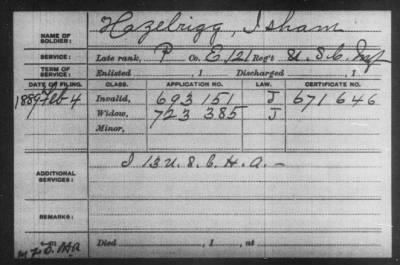 NAME OF SOLDIER: Hazelrigg, Isham
SERVICE: Late rank, P Co. E, 121 Reg't U.S.C. Inf
TERM OF SERVICE: Enlisted , 1 Discharged , 1
DATE OF FILING. CLASS. APPLICATION NO. LAW. CERTIFICATE NO.
1889 Feb 4 Invalid, 693 151 J 671 646
Widow, 723 385 J
Minor,
ADDITIONAL SERVICES: I 13 U.S.C.H.A. -
REMARKS:
Died , 1 , at